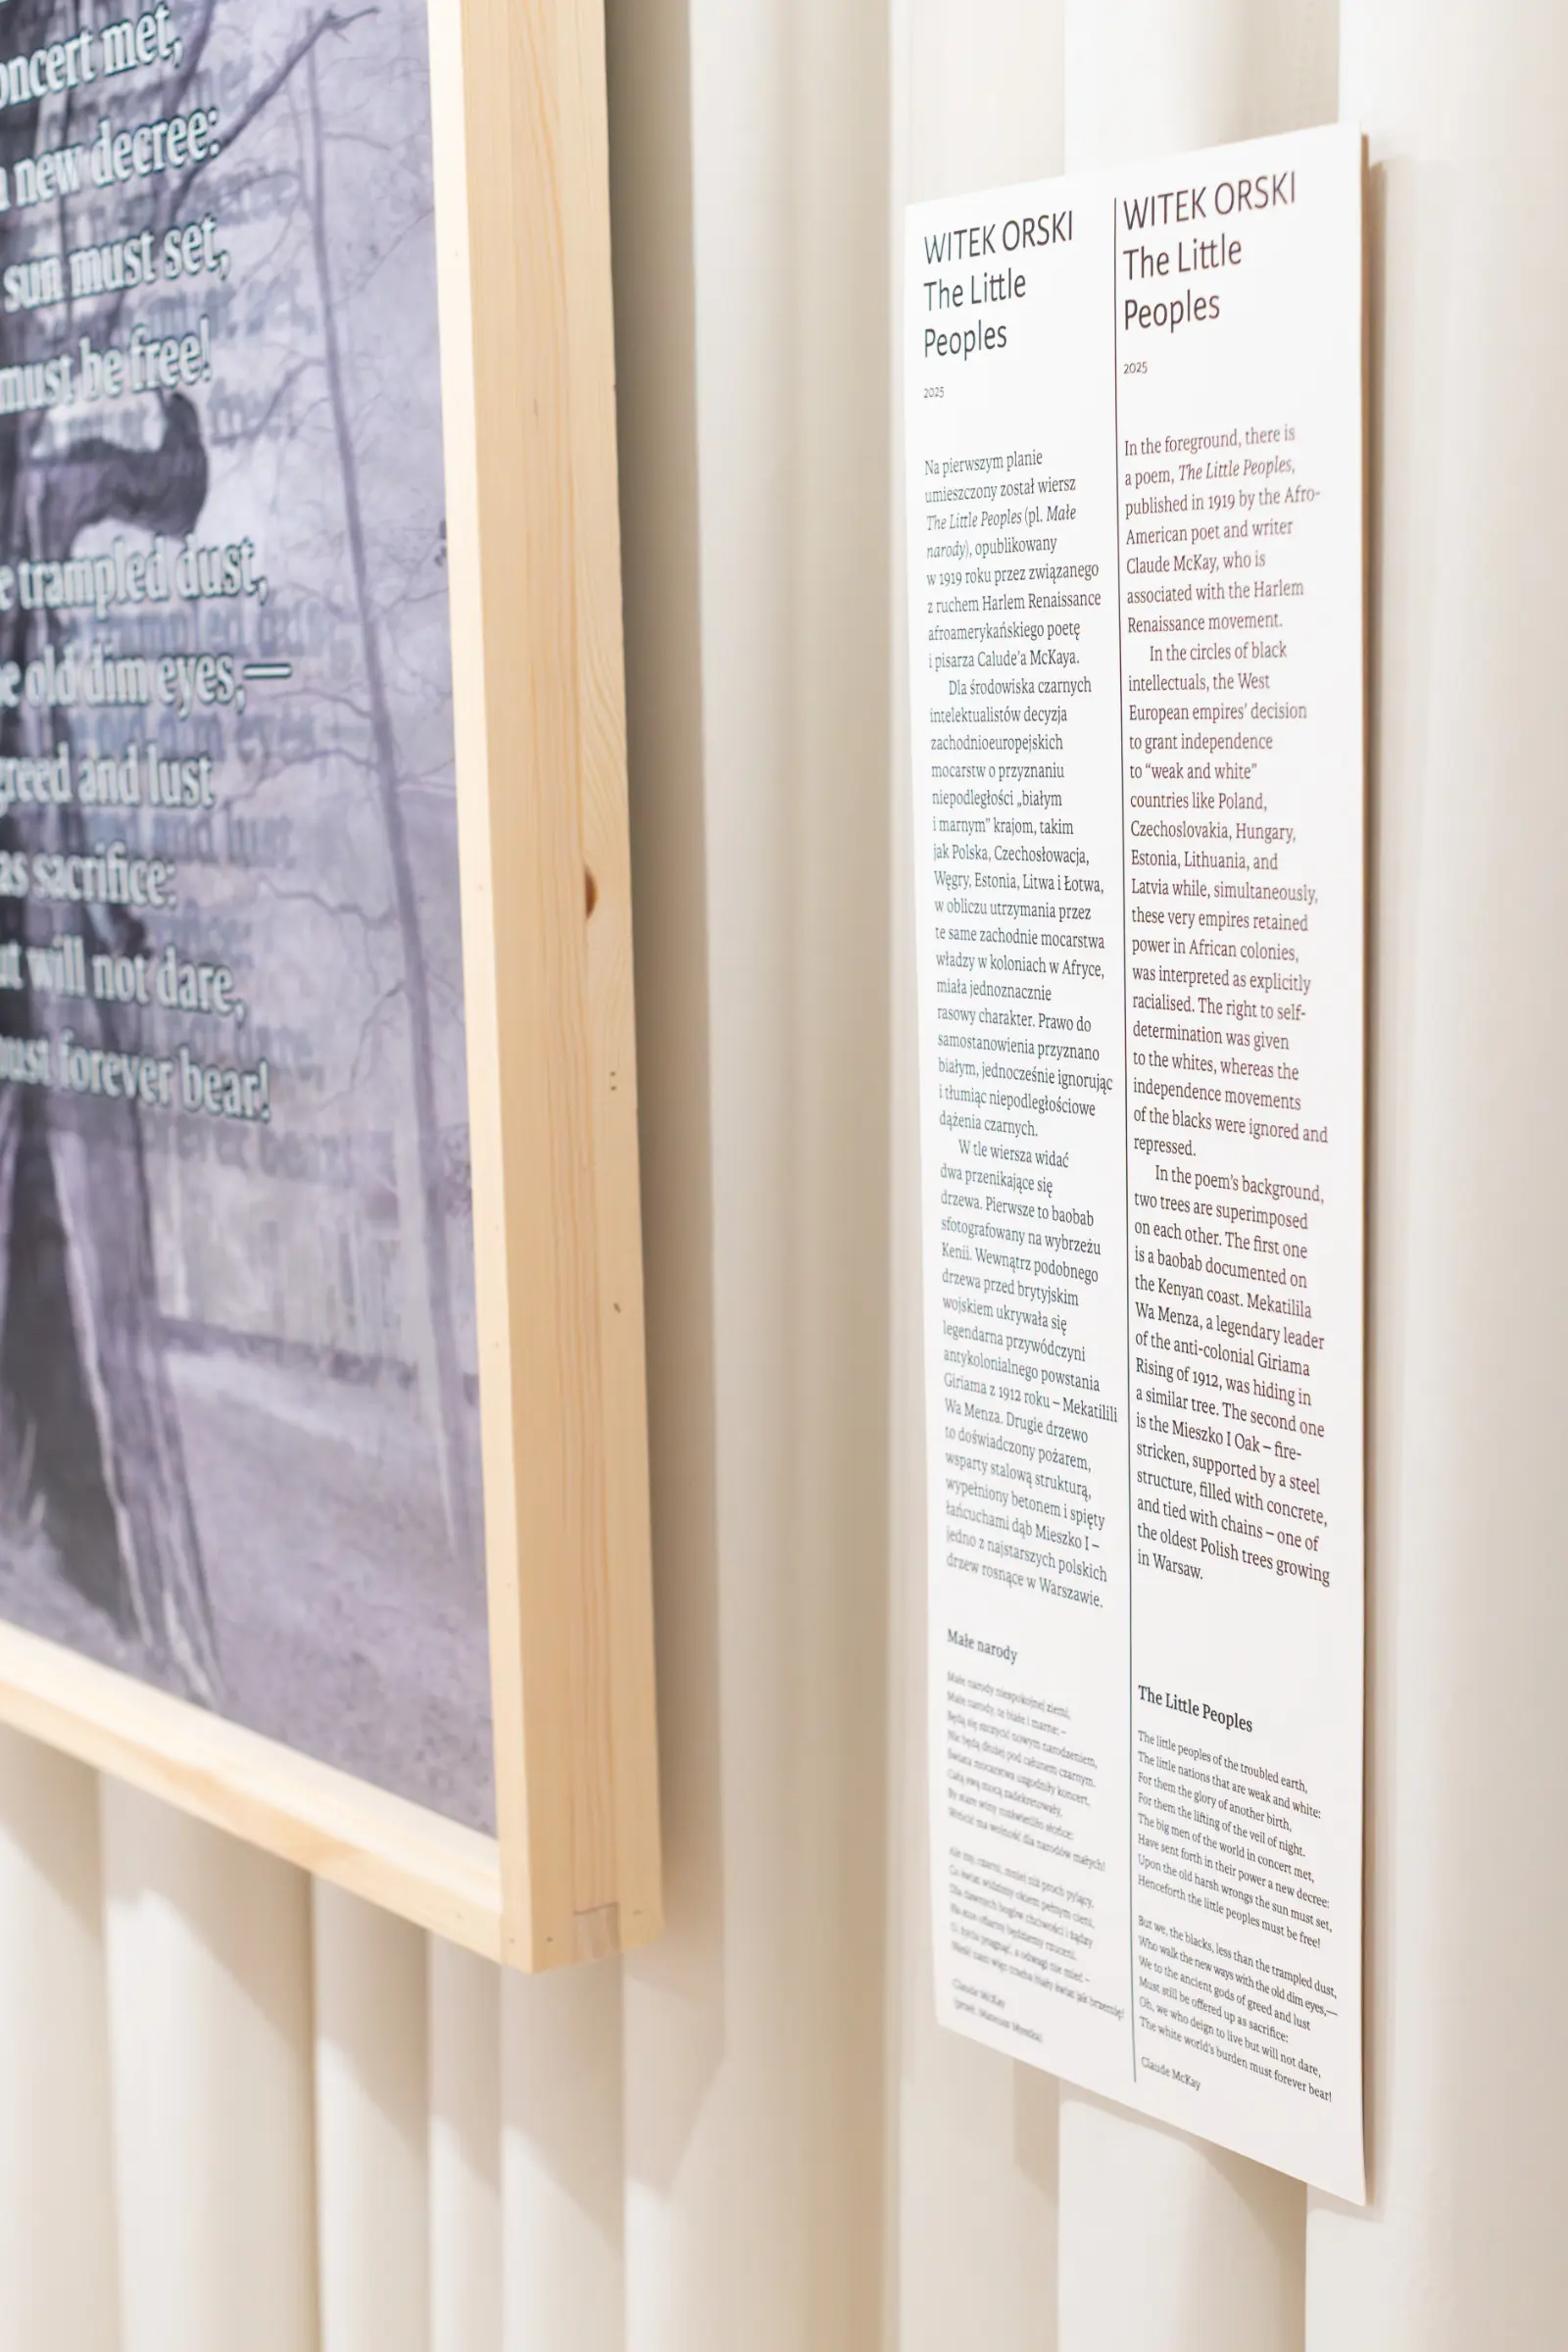 oncert met,
new decree:
sun must set,
must be free!
trampled dust,
old dim eyes,—
greed and lust
as sacrifice:
will not dare,
must forever bear!
WITEK ORSKI
The Little
Peoples
2025
Na pierwszym planie
umieszczony został wiersz
The Little Peoples (pl. Małe
narody), opublikowany
w 1919 roku przez związanego
z ruchem Harlem Renaissance
afroamerykańskiego poetę
i pisarza Calude’a McKaya.
Dla środowiska czarnych
intelektualistów decyzja
zachodnioeuropejskich
mocarstw o przyznaniu
niepodległości „białym
i marnym” krajom, takim
jak Polska, Czechosłowacja,
Węgry, Estonia, Litwa i Łotwa,
w obliczu utrzymania przez
te same zachodnie mocarstwa
władzy w koloniach w Afryce,
miała jednoznacznie
rasowy charakter. Prawo do
samostanowienia przyznano
białym, jednocześnie ignorując
i tłumiąc niepodległościowe
dążenia czarnych.
W tle wiersza widać
dwa przenikające się
drzewa. Pierwsze to baobab
sfotografowany na wybrzeżu
Kenii. Wewnątrz podobnego
drzewa przed brytyjskim
wojskiem ukrywała się
legendarna przywódczyni
antykolonialnego powstania
Giriama z 1912 roku – Mekatilili
Wa Menza. Drugie drzewo
to doświadczony pożarem,
wsparty stalową strukturą,
wypełniony betonem i spięty
łańcuchami dąb Mieszko I –
jedno z najstarszych polskich
drzew rosnące w Warszawie.
Małe narody
Małe narody niespokojnej ziemi,
Małe narody, te białe i marne; –
Będą się szczycić nowym narodzeniem,
Nie będą dłużej pod całunem czarnym.
Świata mocarstwa uzgodniły koncert,
Całą swą mocą zadekretowały,
By stare winy rozświetliło słońce:
Wrócić ma wolność dla narodów małych!
Ale my, czarni, mniej niż proch pylący,
Co świat widzimy okiem pełnym cieni,
Dla dawnych bogów chciwości i żądzy
Na stos ofiarny będziemy rzuceni.
O, życia pragnąć, a odwagi nie mieć –
Nieść nam więc trzeba biały świat jak brzemię!
Claude McKay
WITEK ORSKI
The Little
Peoples
2025
In the foreground, there is
a poem, The Little Peoples,
published in 1919 by the Afro-
American poet and writer
Claude McKay, who is
associated with the Harlem
Renaissance movement.
In the circles of black
intellectuals, the West
European empires’ decision
to grant independence
to “weak and white”
countries like Poland,
Czechoslovakia, Hungary,
Estonia, Lithuania, and
Latvia while, simultaneously,
these very empires retained
power in African colonies,
was interpreted as explicitly
racialised. The right to self-
determination was given
to the whites, whereas the
independence movements
of the blacks were ignored and
repressed.
In the poem’s background,
two trees are superimposed
on each other. The first one
is a baobab documented on
the Kenyan coast. Mekatilila
Wa Menza, a legendary leader
of the anti-colonial Giriama
Rising of 1912, was hiding in
a similar tree. The second one
is the Mieszko I Oak – fire-
stricken, supported by a steel
structure, filled with concrete,
and tied with chains – one of
the oldest Polish trees growing
in Warsaw.
The Little Peoples
The little peoples of the troubled earth,
The little nations that are weak and white:
For them the glory of another birth,
For them the lifting of the veil of night.
The big men of the world in concert met,
Have sent forth in their power a new decree:
Upon the old harsh wrongs the sun must set,
Henceforth the little peoples must be free!
But we, the blacks, less than the trampled dust,
Who walk the new ways with the old dim eyes,—
We to the ancient gods of greed and lust
Must still be offered up as sacrifice:
Oh, we who deign to live but will not dare,
The white world’s burden must forever bear!
Claude McKay